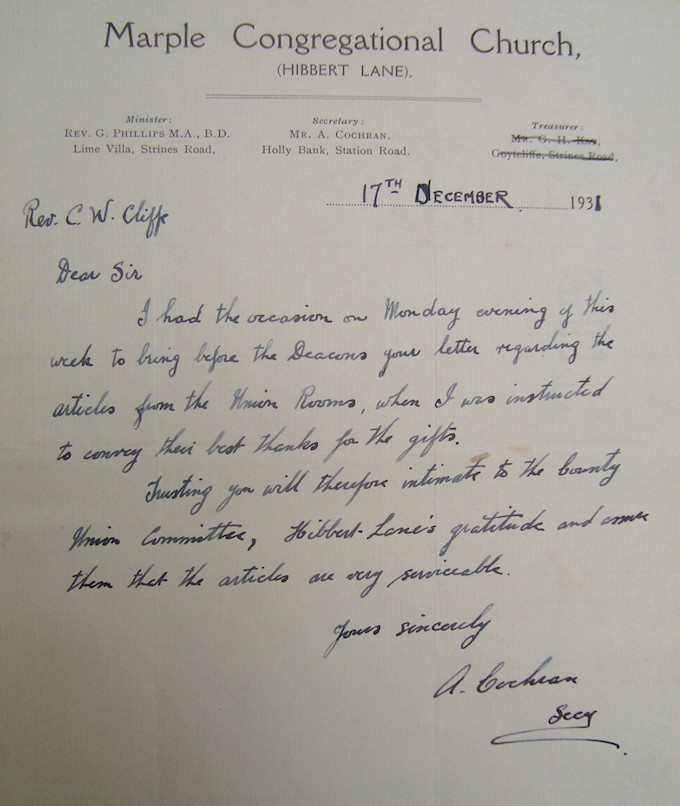 Marple Congregational Church,
(HIBBERT LANE).
Minister:
REV. G. PHILLIPS M.A., B.D.
Lime Villa, Strines Road,
Secretary:
MR. A. COCHRAN.
Holly Bank, Station Road.
Treasurer:
MR. G. H. KAY,
Goytcliffe, Strines Road,
17TH DECEMBER 1931
Rev. C. W. Cliffe
Dear Sir
I had the occasion on Monday evening of this
week to bring before the Deacons your letter regarding the
articles from the Union Rooms, when I was instructed
to convey their best thanks for the gifts.
Trusting you will therefore intimate to the County
Union Committee, Hibbert Lane's gratitude and assure
them that the articles are very serviceable.
Yours sincerely
A. Cochran
Secy